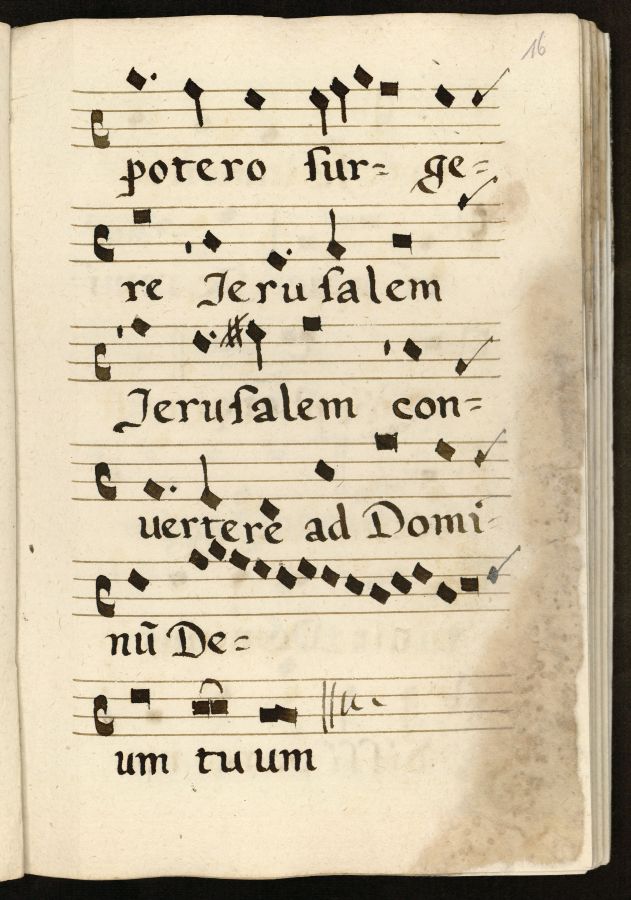 16
potero sur= ge=
re Jerusalem
Jerusalem con=
uertere ad Domi-
nũ De=
um tuum